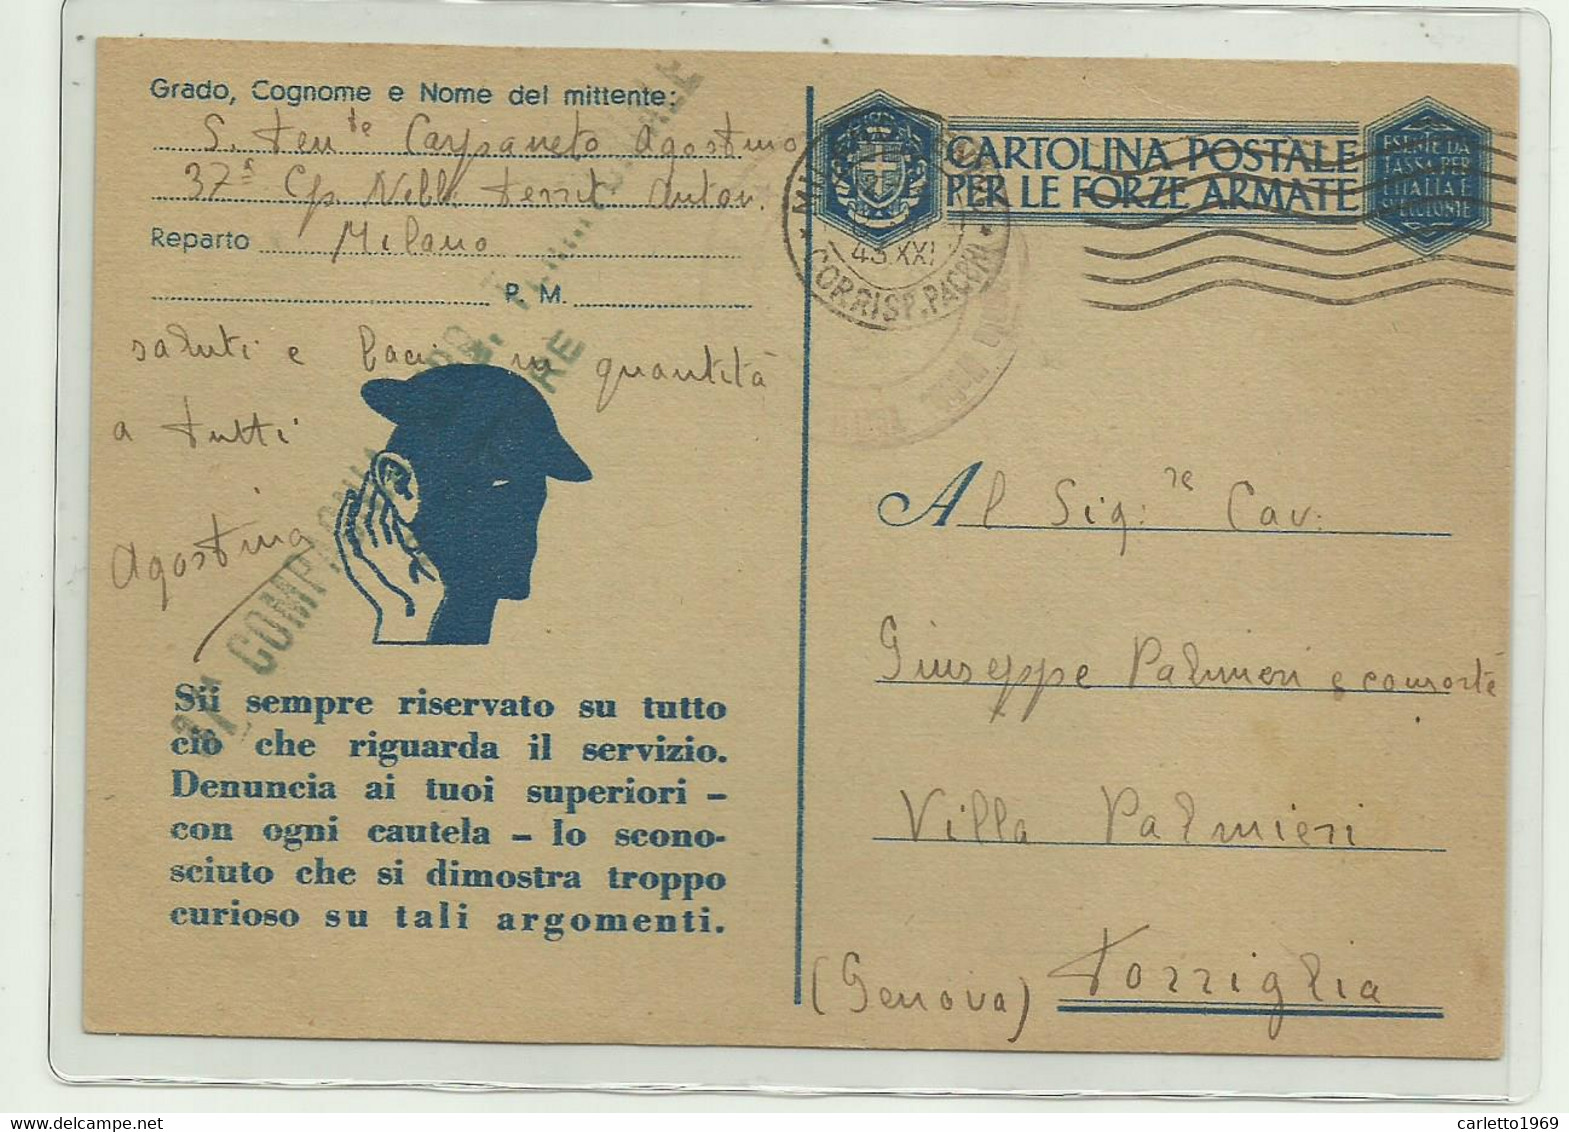 Grado, Cognome e Nome del mittente:
S. Ten.te Carpaneto Agostino
37ª Cp. Nebb. Territ. Auton.
Reparto Milano
P. M.
saluti e baci in quantità
a tutti
Agostino
COMPAGNIA
Sii sempre riservato su tutto
ciò che riguarda il servizio.
Denuncia ai tuoi superiori –
con ogni cautela – lo scono-
sciuto che si dimostra troppo
curioso su tali argomenti.
CARTOLINA POSTALE
PER LE FORZE ARMATE
ESENTE DA
TASSA PER
L'ITALIA E
43.XXI
CORRISP. PACCHI
Al Sig.re Cav.
Giuseppe Palmieri e consorte
Villa Palmieri
(Genova) Torriglia
carletto1969